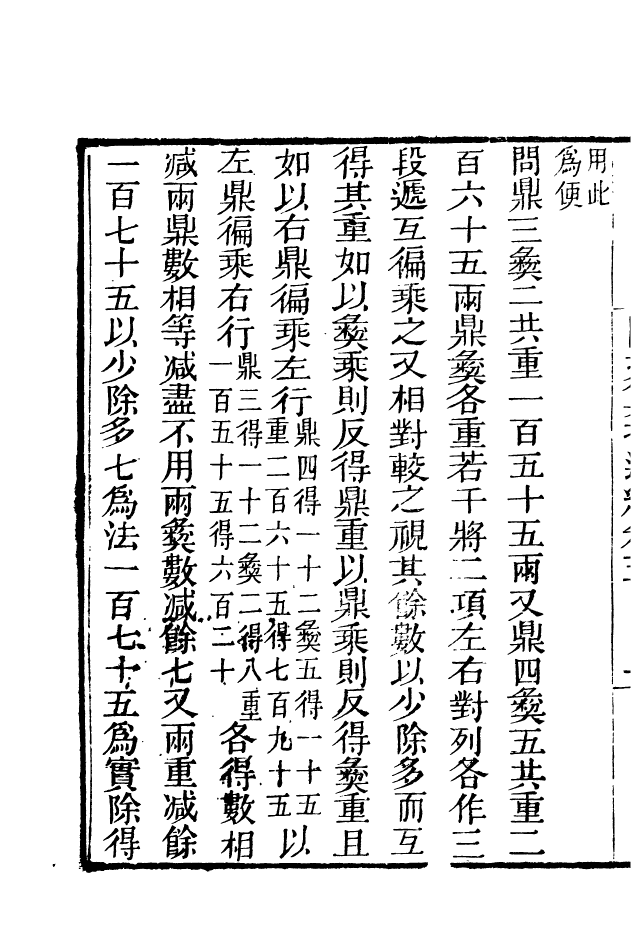 用此
爲便
問鼎三彜二共重一百五十五兩又鼎四彜五共重二
百六十五兩鼎彜各重若干將二項左右對列各作三
段遞互徧乘之又相對較之視其餘數以少除多而互
得其重如以彜乘則反得鼎重以鼎乘則反得彜重且
如以右鼎徧乘左行鼎四得一十二彜五得一十五
重二百六十五得七百九十五以
左鼎徧乘右行鼎三得一十二彜二得八重
一百五十五得六百二十各得數相
减兩鼎數相等减盡不用兩彜數减餘七又兩重减餘
一百七十五以少除多七爲法一百七十五爲實除得